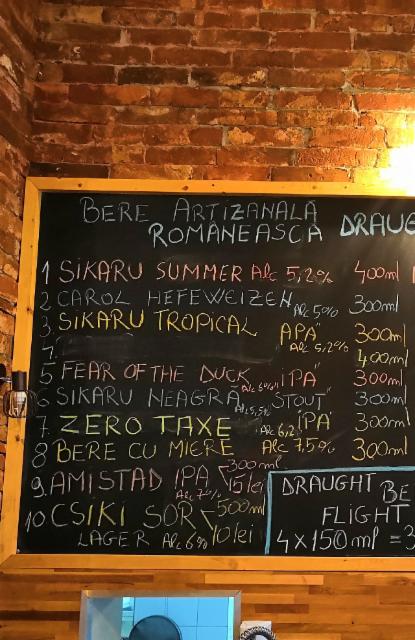 BERE ARTIZANALĂ DRAUG
ROMÂNEASCĂ
1 SIKARU SUMMER Alc 5,2% 400ml
2 CAROL HEFEWEIZEN Alc 5% 300ml
3. SIKARU TROPICAL APA" Alc 5,2% 300ml
4. 400ml
5 FEAR OF THE DUCK Alc 6% "IPA" 300ml
6 SIKARU NEAGRĂ Alc 5,5% "STOUT" 300ml
7. ZERO TAXE Alc 6,2% "IPA 300ml
8 BERE CU MIERE Alc 7,5% 300ml
9. AMISTAD IPA 300ml
Alc 7% 15 lei
10. CSIKI SOR 500ml
LAGER Alc 6% 10 lei
DRAUGHT BE
FLIGHT
4x150ml =3